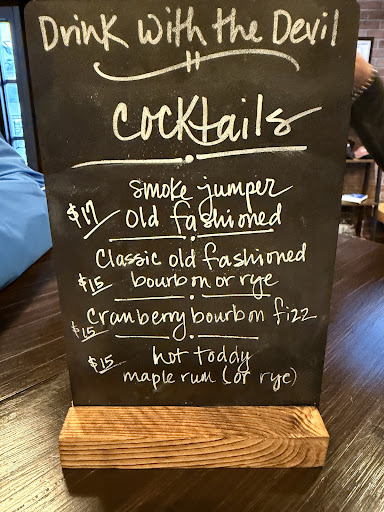 Drink with the Devil
Cocktails
smoke jumper
$17 old fashioned
Classic old fashioned
$15 bourbon or rye
Cranberry bourbon fizz
$15
$15 hot toddy
maple rum (or rye)